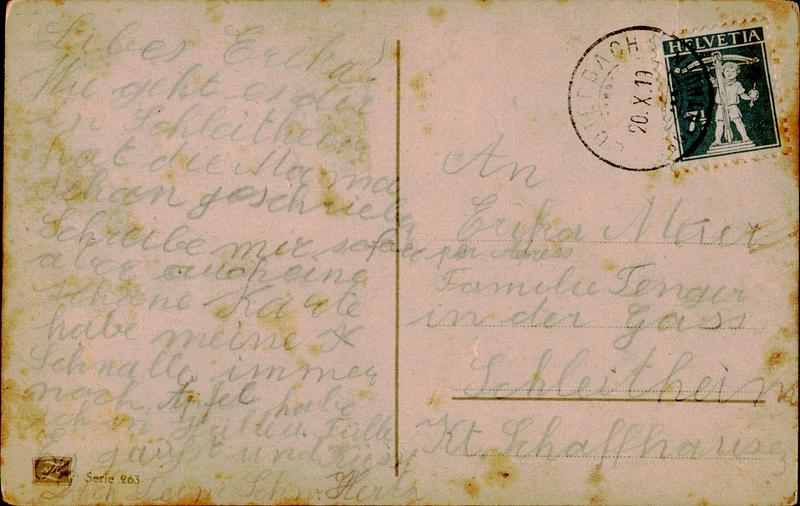 Libes Erika!
Wie geht es dir
in Schleitheim
hat die Mama
schon geschrieben
Schreibe mir sofort
aber auch eine
schöne Karte
habe meine
Schnalle immer
noch, Äpfel habe
ich in Hülle u. Fülle
und
Serie 263
HELVETIA
7½
20.X.19
An
Erika Meier
per Adress
Familie Tenger
in der Gass
Schleitheim
Kt Schaffhausen